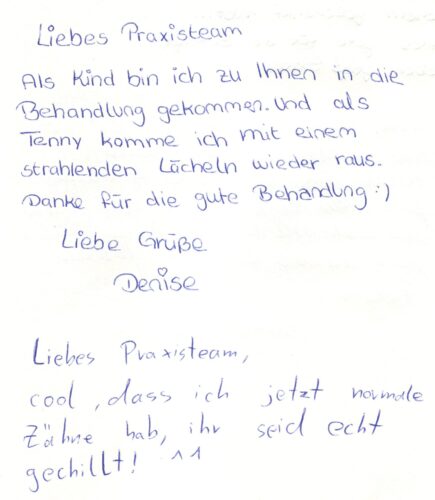 Liebes Praxisteam
Als Kind bin ich zu Ihnen in die
Behandlung gekommen. Und als
Tenny komme ich mit einem
strahlenden Lächeln wieder raus.
Danke für die gute Behandlung :)
Liebe Grüße
Denise
Liebes Praxisteam,
cool, dass ich jetzt normale
Zähne hab, ihr seid echt
gechillt! ^^